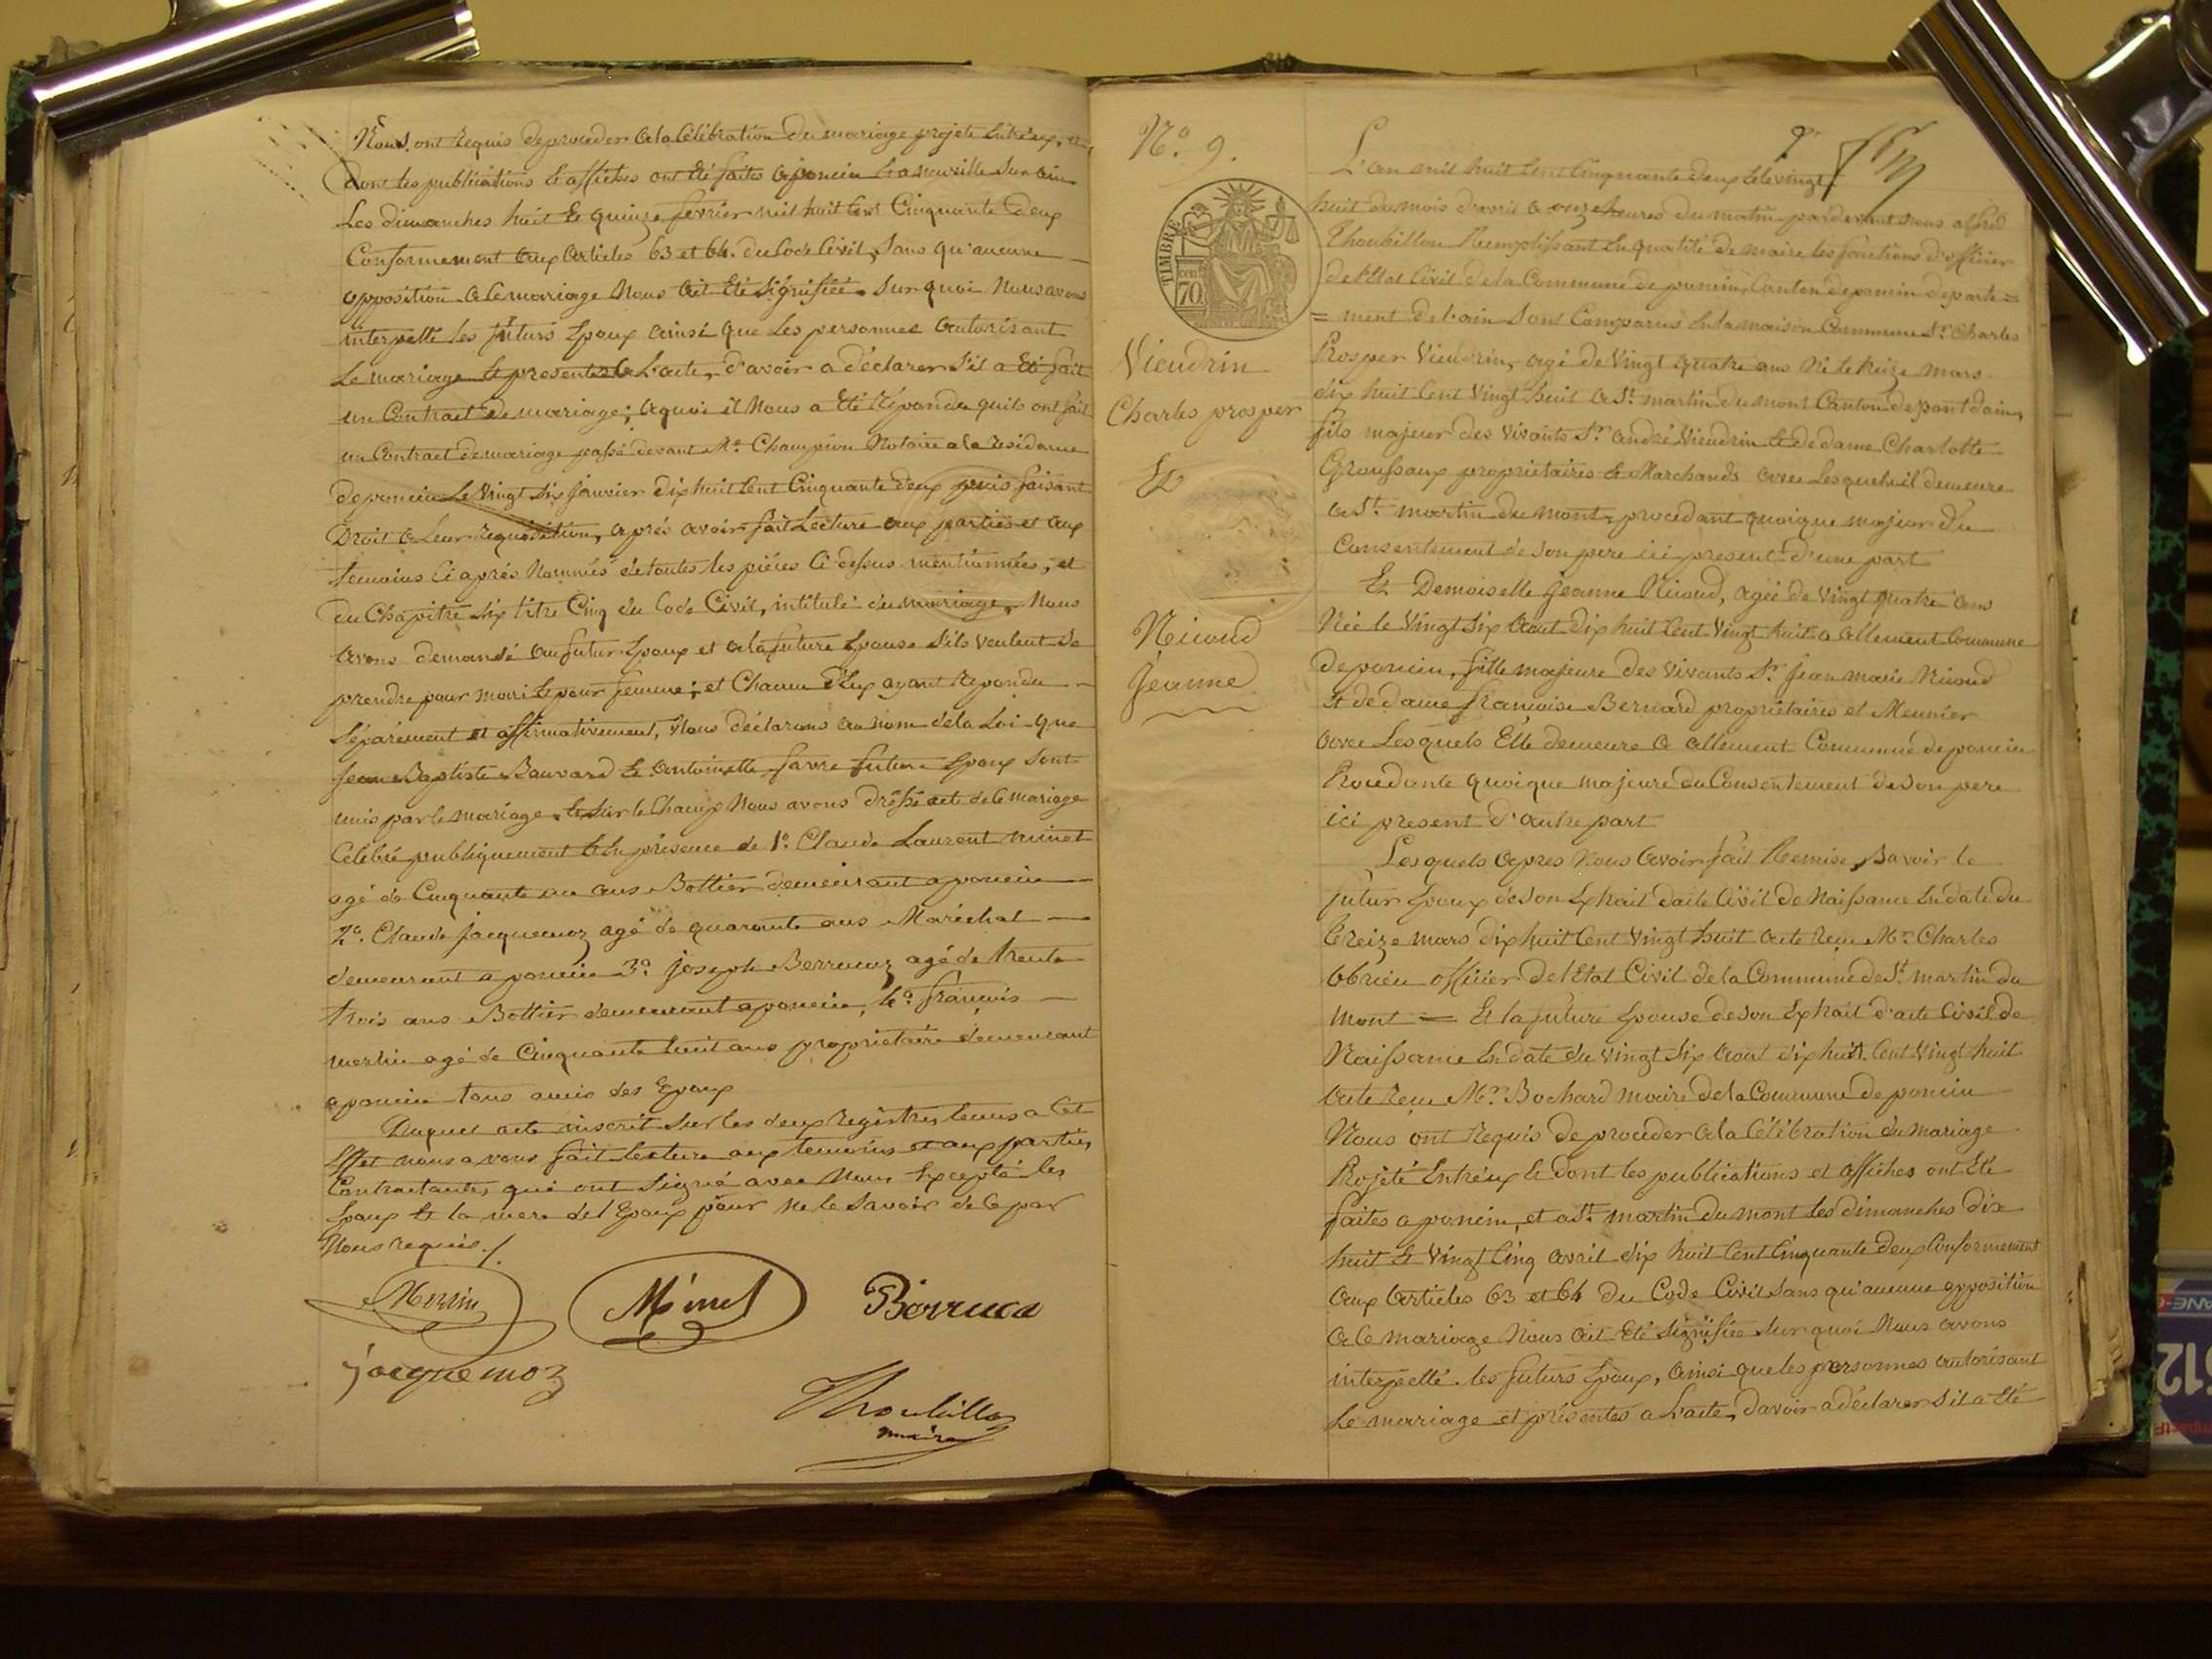 Nous ont Requis de proceder a la Célébration du mariage projeté Entr'eux, et
dont les publications & affiches ont été faites a poncin & a neuville Sur ain
Les dimanches huit & quinze fevrier mil huit Cent Cinquante Deux
Conformement aux articles 63 et 64. du Code Civil, Sans qu'aucune
opposition a Ce mariage Nous ait Eté Signifiée. Sur quoi Nous avons
interpellé les futurs Epoux ainsi que Les personnes autorisant
Le mariage & presentes a L'acte, d'avoir a déclarer S'il a Eté fait
un Contrat de mariage; a quoi il Nous a Eté Répondu quils ont fait
un Contract de mariage passé devant Me. Champion Notaire a la residance
de poncin Le Vingt Six Janvier dix huit Cent Cinquante deux puis faisant
Droit a Leur requisition, aprés avoir fait Lecture aux parties et aux
temoins Ci aprés Nommés de toutes les piéces Ci dessus mentionnées, et
du Chapitre Six titre Cinq du Code Civil, intitulé du mariage, Nous
avons demandé au futur Epoux et a la future Epouse S'ils veulent Se
prendre pour mari & pour femme; et Chacun d'Eux ayant Repondu
Séparément et affirmativement, Nous déclarons au nom de la Loi que
Jean Baptiste Bavard & antoinette favre future Epoux Sont
unis par le mariage. & Sur le Champ Nous avons dréssé acte de Ce mariage
Célébré publiquement & En présence de 1o. Claude Laurent minet
agé de Cinquante un ans Bottier demeurant a poncin
2o. Claude Jacquemoz agé de quarante ans Maréchal
demeurant a poncin 3o. joseph Berrucaz agé de trente
trois ans Bottier demeurant a poncin, 4o. francois
merlin agé de Cinquante huit ans propriétaire demeurant
a poncin tous amis des Epoux
Duquel acte inscrit Sur les deux registres tenus a Cet
Effet nous avons fait lecture aux temoins et aux parties
Contractantes, qui ont Signé avec Nous Excepté les
Epoux & la mere de l'Epoux pour ne le Savoir de Ce par
Nous requis./
Merlin Minet Berruca
jacquemoz
Thoubillon
maire
No. 9.
TIMBRE
cent 70
Vieudrin
Charles prosper
Et
Nicoud
Jeanne
9
L'an mil huit Cent Cinquante deux & le vingt
huit du mois d'avril a onze heures du matin pardevant nous alfred
Thoubillon Remplissant En qualité de maire les fonctions d'officier
de l'Etat Civil de la Commune de poncin, Canton de poncin departe=
=ment de l'ain Sont Comparus En la maison Commune Sr. Charles
Prosper Vieudrin, agé de Vingt quatre ans Né le treize mars
dix huit Cent Vingt huit a St. martin du mont Canton de pont dain,
fils majeur des Vivants Sr. andré Vieudrin & de dame Charlotte
Groussaux proprietaires & Marchands avec Lesquels il demeure
a St. martin du mont, procedant quoique majeur du
Consentement de Son pere ici present d'une part
Et Demoiselle Jeanne Nicoud, agée de Vingt quatre ans
Née le Vingt Six Aout dix huit Cent Vingt huit a allement Commune
de poncin, fille majeure des Vivants Sr. Jean marie Nicoud
Et de dame francoise Bernard propriétaires et Meunier
avec Lesquels Elle demeure a allement Commune de poncin
Procedante quoique majeure du Consentement de Son pere
ici present d'autre part
Lesquels apres Nous avoir fait Remise, Savoir le
futur Epoux de Son Extrait d'acte Civil de Naissance En date du
treize mars dix huit Cent Vingt huit acte Reçu Mr. Charles
officier de l'Etat Civil de la Commune de St. martin du
Mont = Et la future Epouse de Son Extrait d'acte Civil de
Naissance En date du Vingt Six Aout dix huit Cent Vingt huit
acte Reçu Mr. Bochard maire de la Commune de poncin
Nous ont Requis de proceder a la Célébration du mariage
Projeté Entr'eux & dont les publications et affiches ont Eté
faites a poncin, et a St. martin du mont Les dimanches dix
huit & Vingt Cinq avril dix huit Cent Cinquante deux Conformement
aux articles 63 et 64 du Code Civil Sans qu'aucune opposition
a Ce mariage Nous ait Eté Signifiée Sur quoi Nous avons
interpellé les futurs Epoux, ainsi que les personnes autorisant
Le mariage et présentes a L'acte, d'avoir a déclarer S'il a Eté